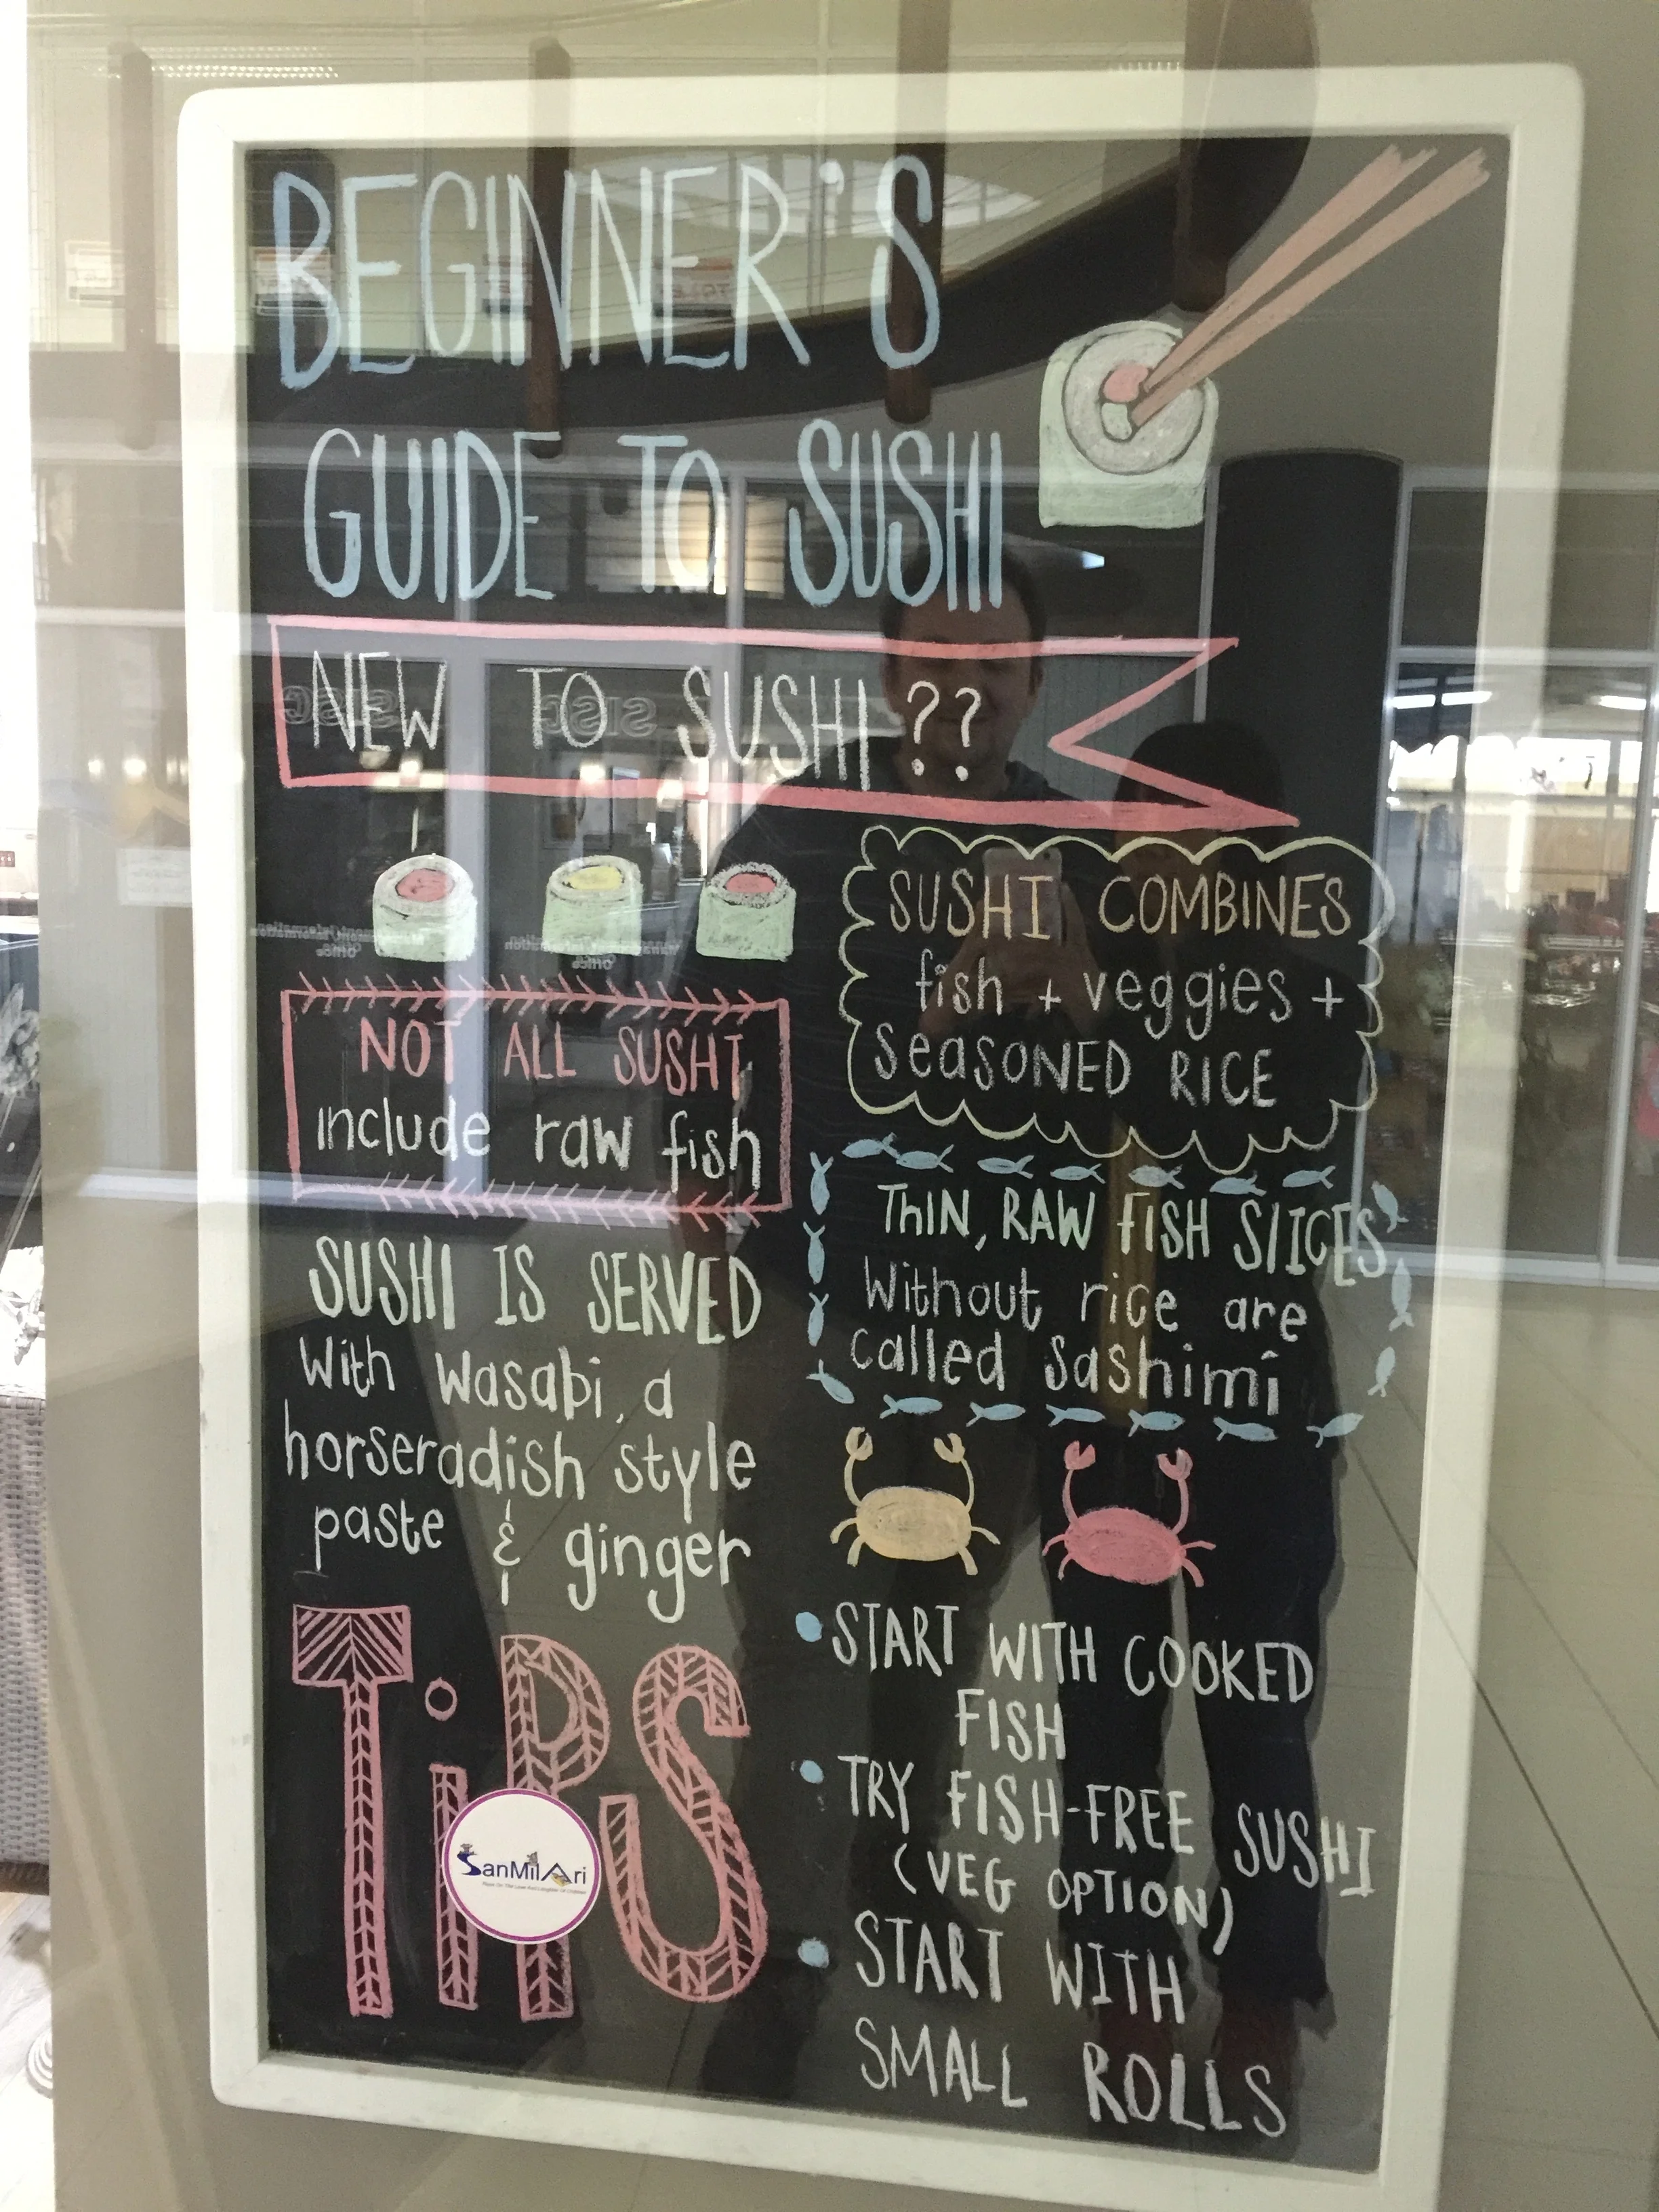 BEGINNER'S
GUIDE TO SUSHI
NEW TO SUSHI??
SUSHI COMBINES
fish + veggies +
SEASONED RICE
NOT ALL SUSHI
include raw fish
THIN, RAW FISH SLICES
Without rice are
called sashimi
SUSHI IS SERVED
With wasabi, a
horseradish style
paste & ginger
TiPS
START WITH COOKED
FISH
TRY FISH-FREE SUSHI
(VEG OPTION)
START WITH
SMALL ROLLS
SanMilAri